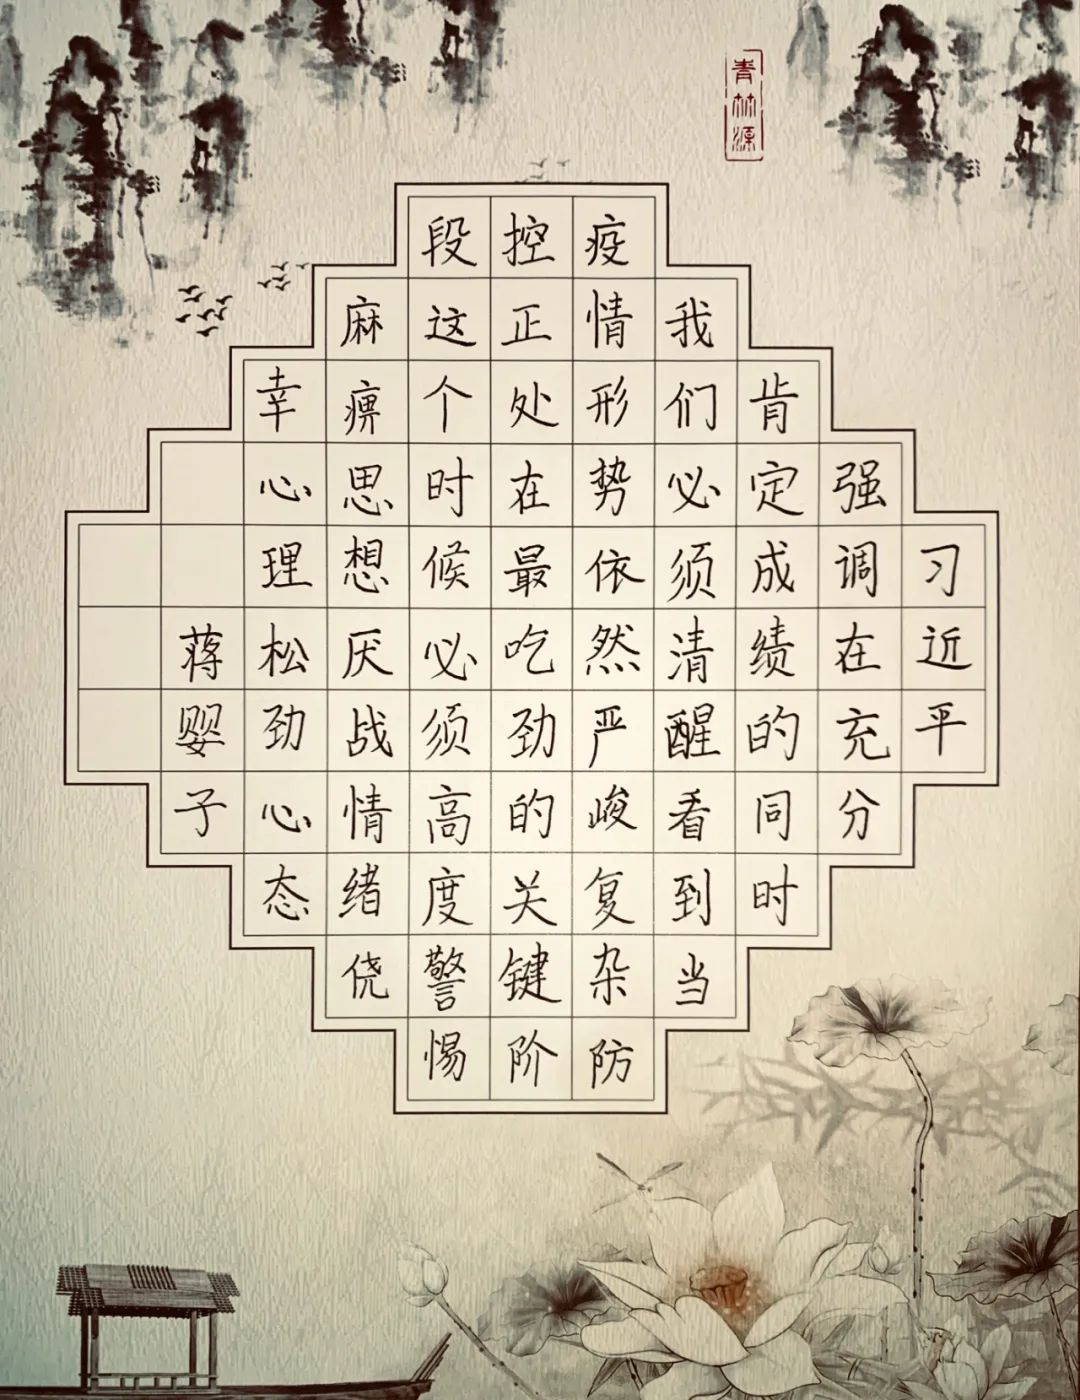 习近平
强调在充分
肯定成绩的同时
我们必须清醒看到当
疫情形势依然严峻复杂防
控正处在最吃劲的关键阶
段这个时候必须高度警惕
麻痹思想厌战情绪侥
幸心理松劲心态
蒋婴子